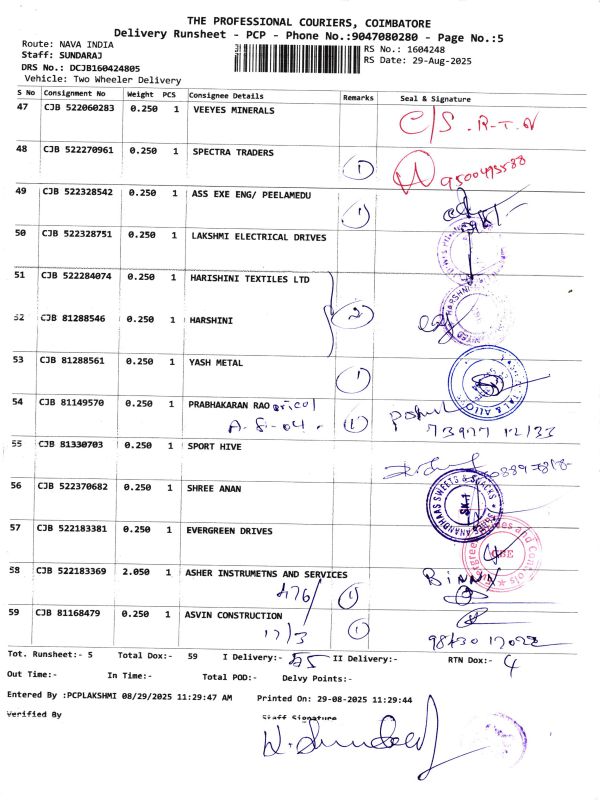 THE PROFESSIONAL COURIERS, COIMBATORE
Delivery Runsheet - PCP - Phone No.:9047080280 - Page No.:5
Route: NAVA INDIA
Staff: SUNDARAJ
DRS No.: DCJB160424805
Vehicle: Two Wheeler Delivery
RS No.: 1604248
RS Date: 29-Aug-2025
S No Consignment No Weight PCS Consignee Details Remarks Seal & Signature
47 CJB 522060283 0.250 1 VEEYES MINERALS C/S . R-T-N
48 CJB 522270961 0.250 1 SPECTRA TRADERS 1
49 CJB 522328542 0.250 1 ASS EXE ENG/ PEELAMEDU 1
50 CJB 522328751 0.250 1 LAKSHMI ELECTRICAL DRIVES
51 CJB 522284074 0.250 1 HARISHINI TEXTILES LTD
52 CJB 81288546 0.250 1 HARSHINI 2
53 CJB 81288561 0.250 1 YASH METAL 1
54 CJB 81149570 0.250 1 PRABHAKARAN RAO pricol
A-8-04. 1
55 CJB 81330703 0.250 1 SPORT HIVE
56 CJB 522370682 0.250 1 SHREE ANAN
ANANDHAAS SWEETS & SNACKS
57 CJB 522183381 0.250 1 EVERGREEN DRIVES
58 CJB 522183369 2.050 1 ASHER INSTRUMETNS AND SERVICES
476/ 1
59 CJB 81168479 0.250 1 ASVIN CONSTRUCTION
17/3 1
Tot. Runsheet:- 5 Total Dox:- 59 I Delivery:- 55 II Delivery:- RTN Dox:- 4
Out Time:- In Time:- Total POD:- Delvy Points:-
Entered By :PCPLAKSHMI 08/29/2025 11:29:47 AM Printed On: 29-08-2025 11:29:44
Verified By Staff Signature